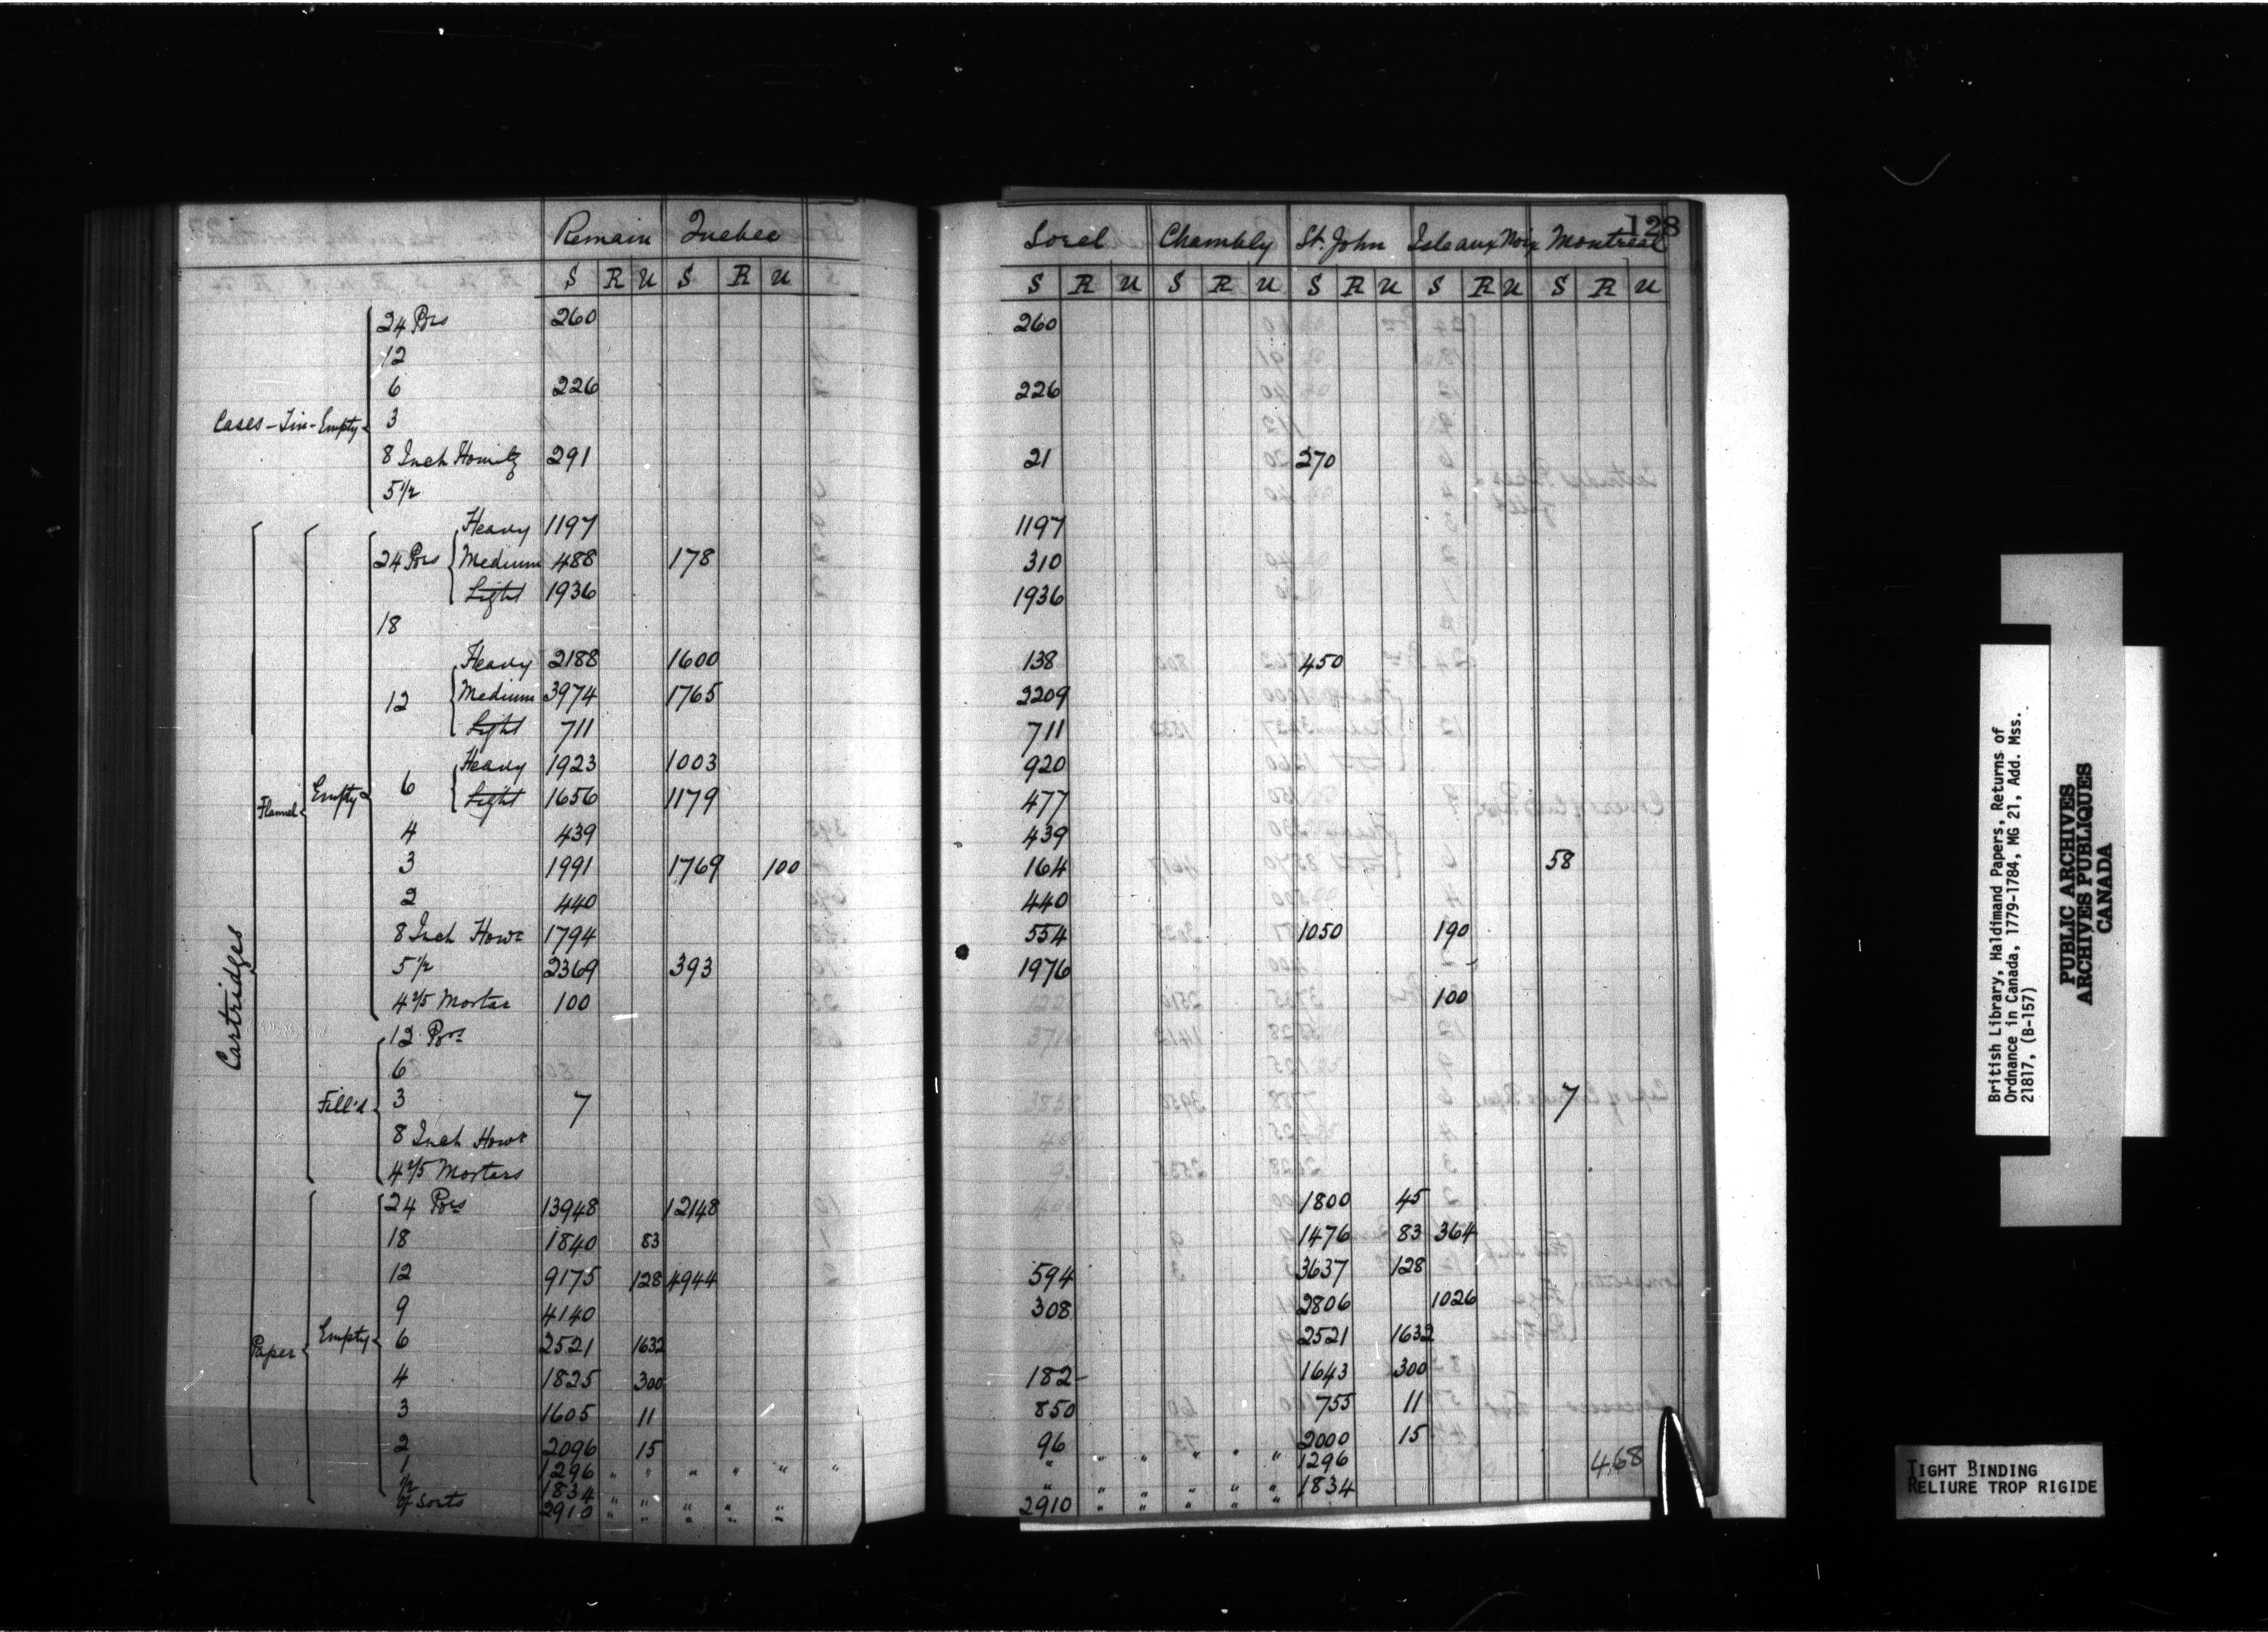 128
Remain Quebec Sorel Chambly St. John Isle aux Noix Montreal
S R U S R U S R U S R U S R U S R U S R U
Cases - Tin - Empty
24 Prs 260 260
12
6 226 226
3
8 Inch Howitz 291 21 270
5 1/2
Cartridges
Flannel
Empty
24 Prs Heavy 1197 1197
Medium 488 178 310
Light 1936 1936
18
12 Heavy 2188 1600 138 450
Medium 3974 1765 2209
Light 711 711
6 Heavy 1923 1003 920
Light 1656 1179 477
4 439 439
3 1991 1769 100 164 58
2 440 440
8 Inch Howr 1794 554 1050 190
5 1/2 2369 393 1976
4 2/5 Mortar 100 100
Fill'd
12 Prs
6
3 7 7
8 Inch Howr
4 2/5 Mortars
Paper
Empty
24 Prs 13948 12148 1800 45
18 1840 83 1476 83 364
12 9175 128 4944 594 3637 128
9 4140 308 2806 1026
6 2521 1632 2521 1632
4 1825 300 182 1643 300
3 1605 11 850 755 11
2 2096 15 96 " " " " " 2000 15
1 1296 " " " " " " 1296
1/2 1834 " " " " " " " " " " " 1834
of Sorts 2910 " " " " " 2910 " " " " "
468
British Library, Haldimand Papers, Returns of
Ordnance in Canada, 1779-1784, MG 21, Add. Mss.
21817, (B-157)
PUBLIC ARCHIVES
ARCHIVES PUBLIQUES
CANADA
TIGHT BINDING
RELIURE TROP RIGIDE